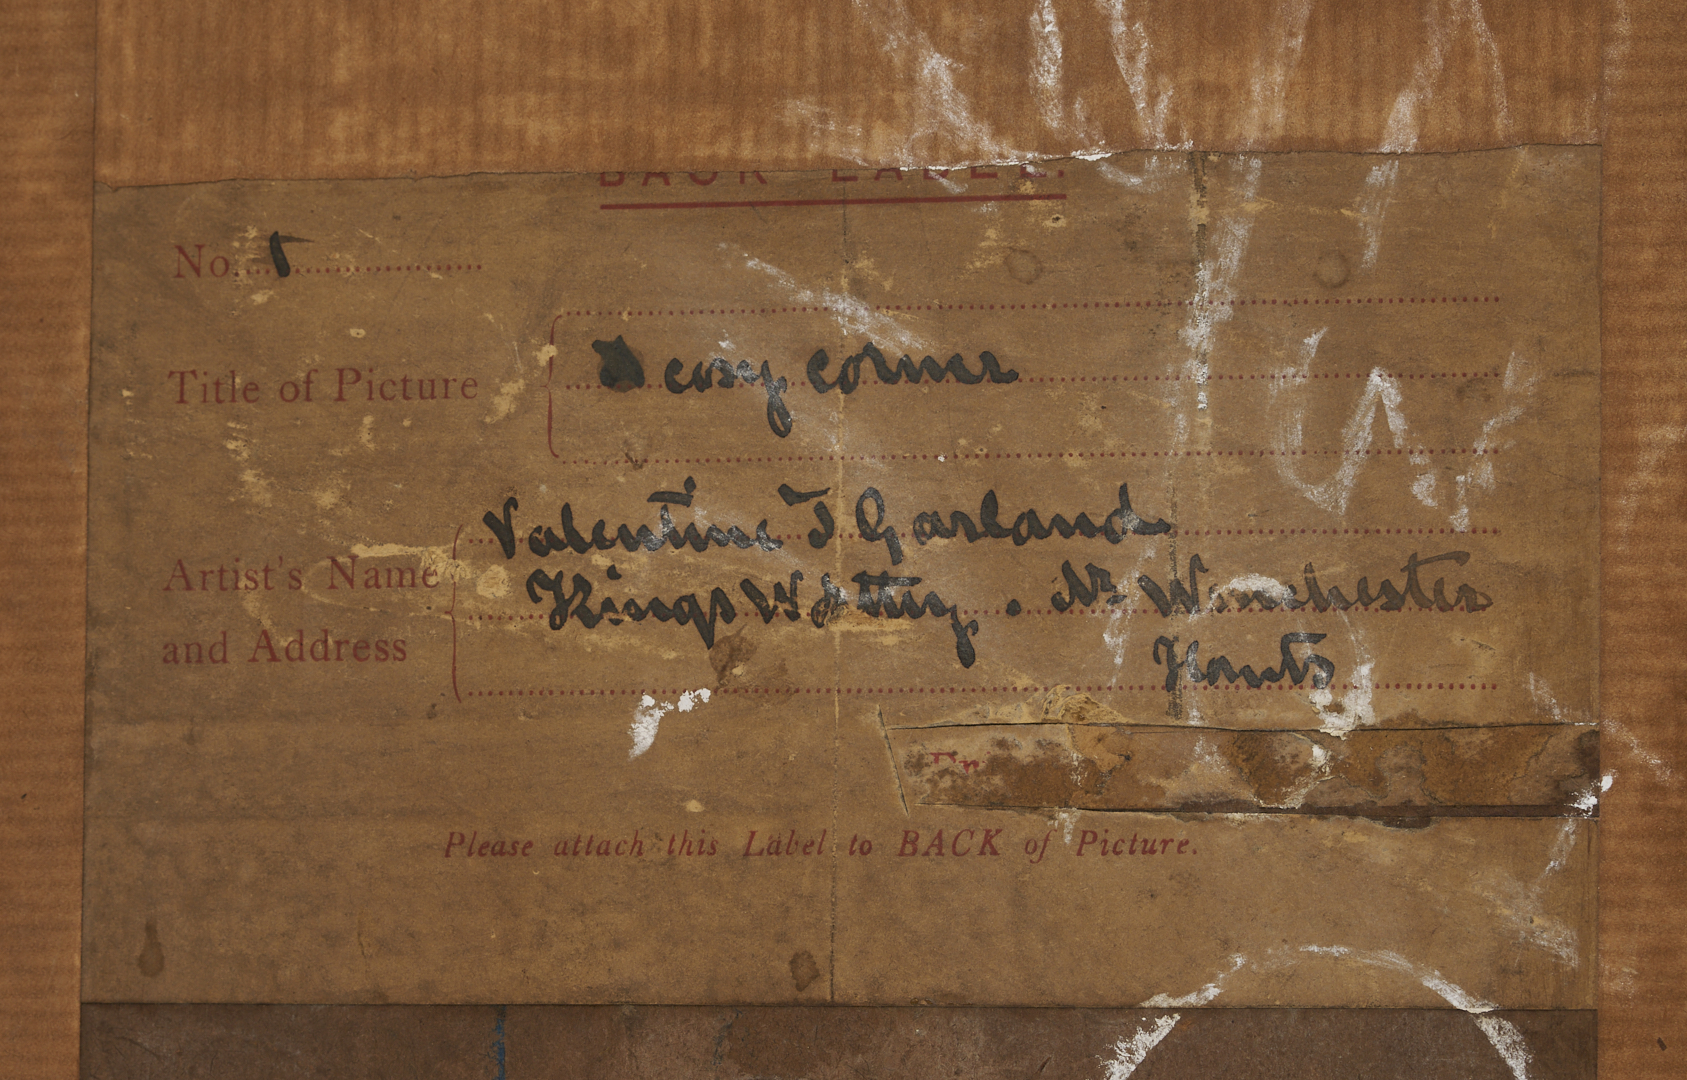 BACK LABEL.
No.
Title of Picture
A cosy corner
Artist's Name
and Address
Valentine T Garland
Kings Worthy. Nr Winchester
Hants
Please attach this Label to BACK of Picture.